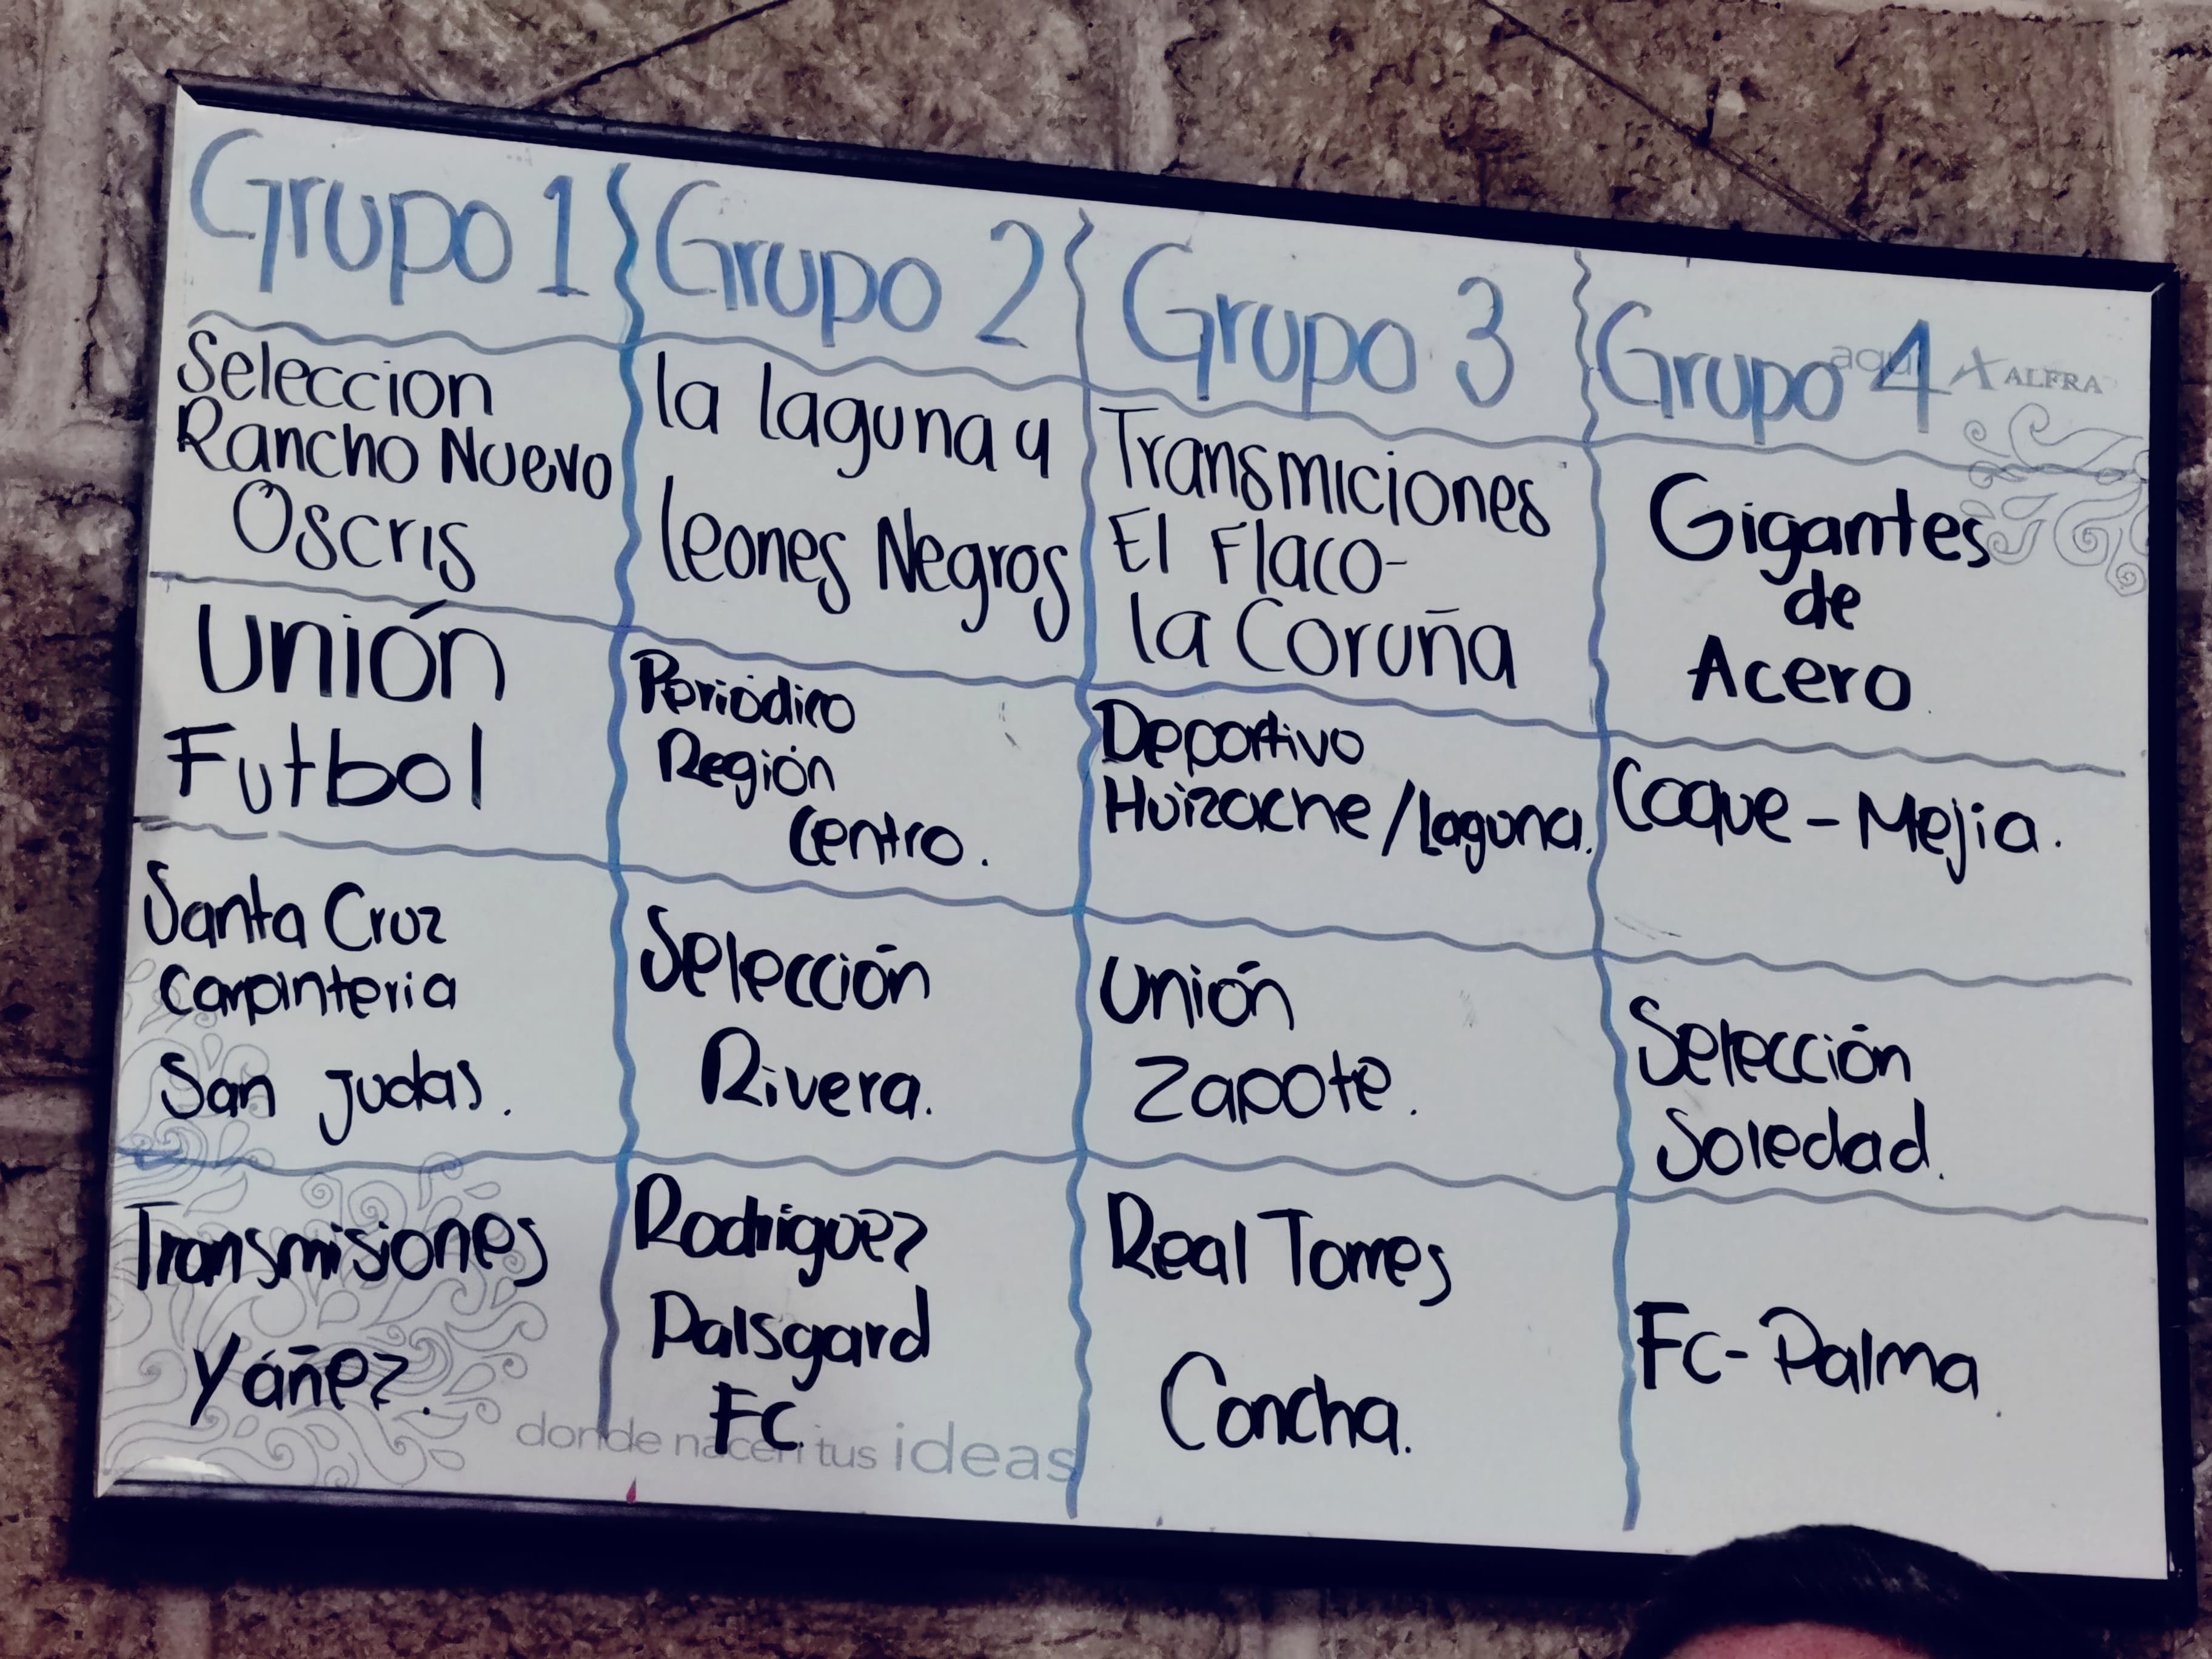 Grupo 1
Seleccion
Rancho Nuevo
Oscris
Unión
Futbol
Santa Cruz
Carpinteria
San Judas.
Transmisiones
Yáñez.
Grupo 2
la laguna y
leones Negros
Periódico
Región
Centro.
Selección
Rivera.
Rodriguez
Palsgard
FC
Grupo 3
Transmiciones
El Flaco-
la Coruña
Deportivo
Huizache/Laguna.
Unión
Zapote.
Real Torres
Concha.
Grupo 4
Gigantes
de
Acero
Coque - Mejia.
Selección
Soledad.
Fc-Palma.
aquí
ALFRA
donde nacen tus ideas